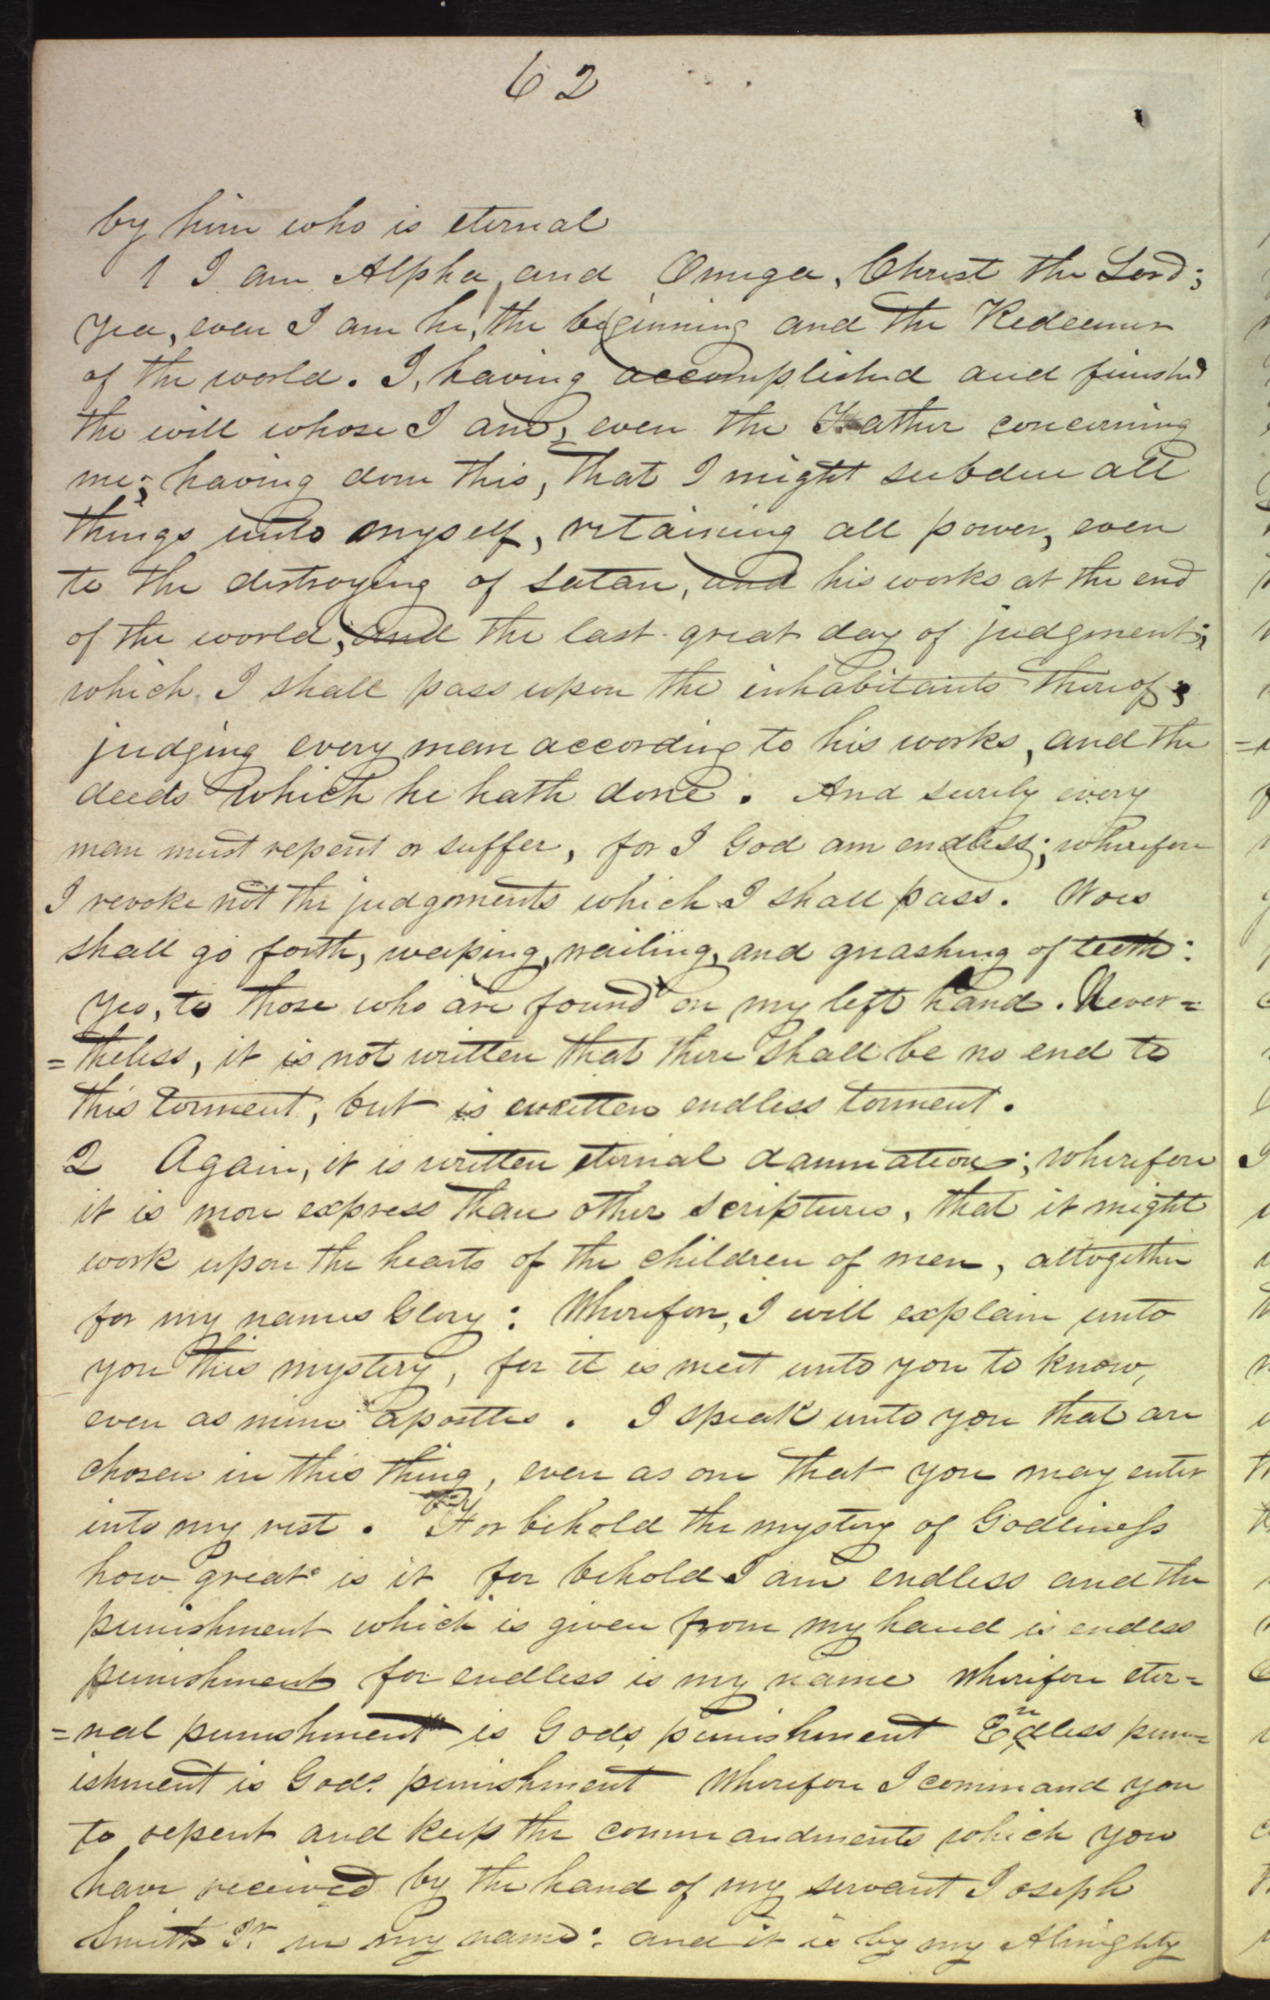 62
by him who is eternal
1 I am Alpha, and Omega, Christ the Lord;
yea, even I am he, the beginning and the Redeemer
of the world. I, having accomplished and finished
the will whose I am, even the Father concerning
me; having done this, that I might subdue all
things unto myself, retaining all power, even
to the destroying of satan, and his works at the end
of the world, and the last great day of judgment;
which I shall pass upon the inhabitants thereof;
judging every man according to his works, and the
deeds which he hath done. And surely every
man must repent or suffer, for I God am endless; wherefore
I revoke not the judgments which I shall pass. Woes
shall go forth, weeping, wailing, and gnashing of teeth:
Yes, to those who are found on my left hand. Never=
=theless, it is not written that there shall be no end to
this torment, but is written endless torment.
2 Again, it is written eternal damnation; wherefore
it is more express than other scriptures, that it might
work upon the hearts of the children of men, altogether
for my names Glory: Wherefore, I will explain unto
you this mystery, for it is meet unto you to know,
even as mine apostles. I speak unto you that are
chosen in this thing, even as one that you may enter
into my rest. For behold the mystery of Godliness
how great is it for behold I am endless and the
punishment which is given from my hand is endless
punishment for endless is my name Wherefore eter=
=nal punishment is Gods punishment Endless pun=
ishment is Gods punishment Wherefore I command you
to repent and keep the commandments which you
have received by the hand of my servant Joseph
Smith Jr. in my name: and it is by my Almighty